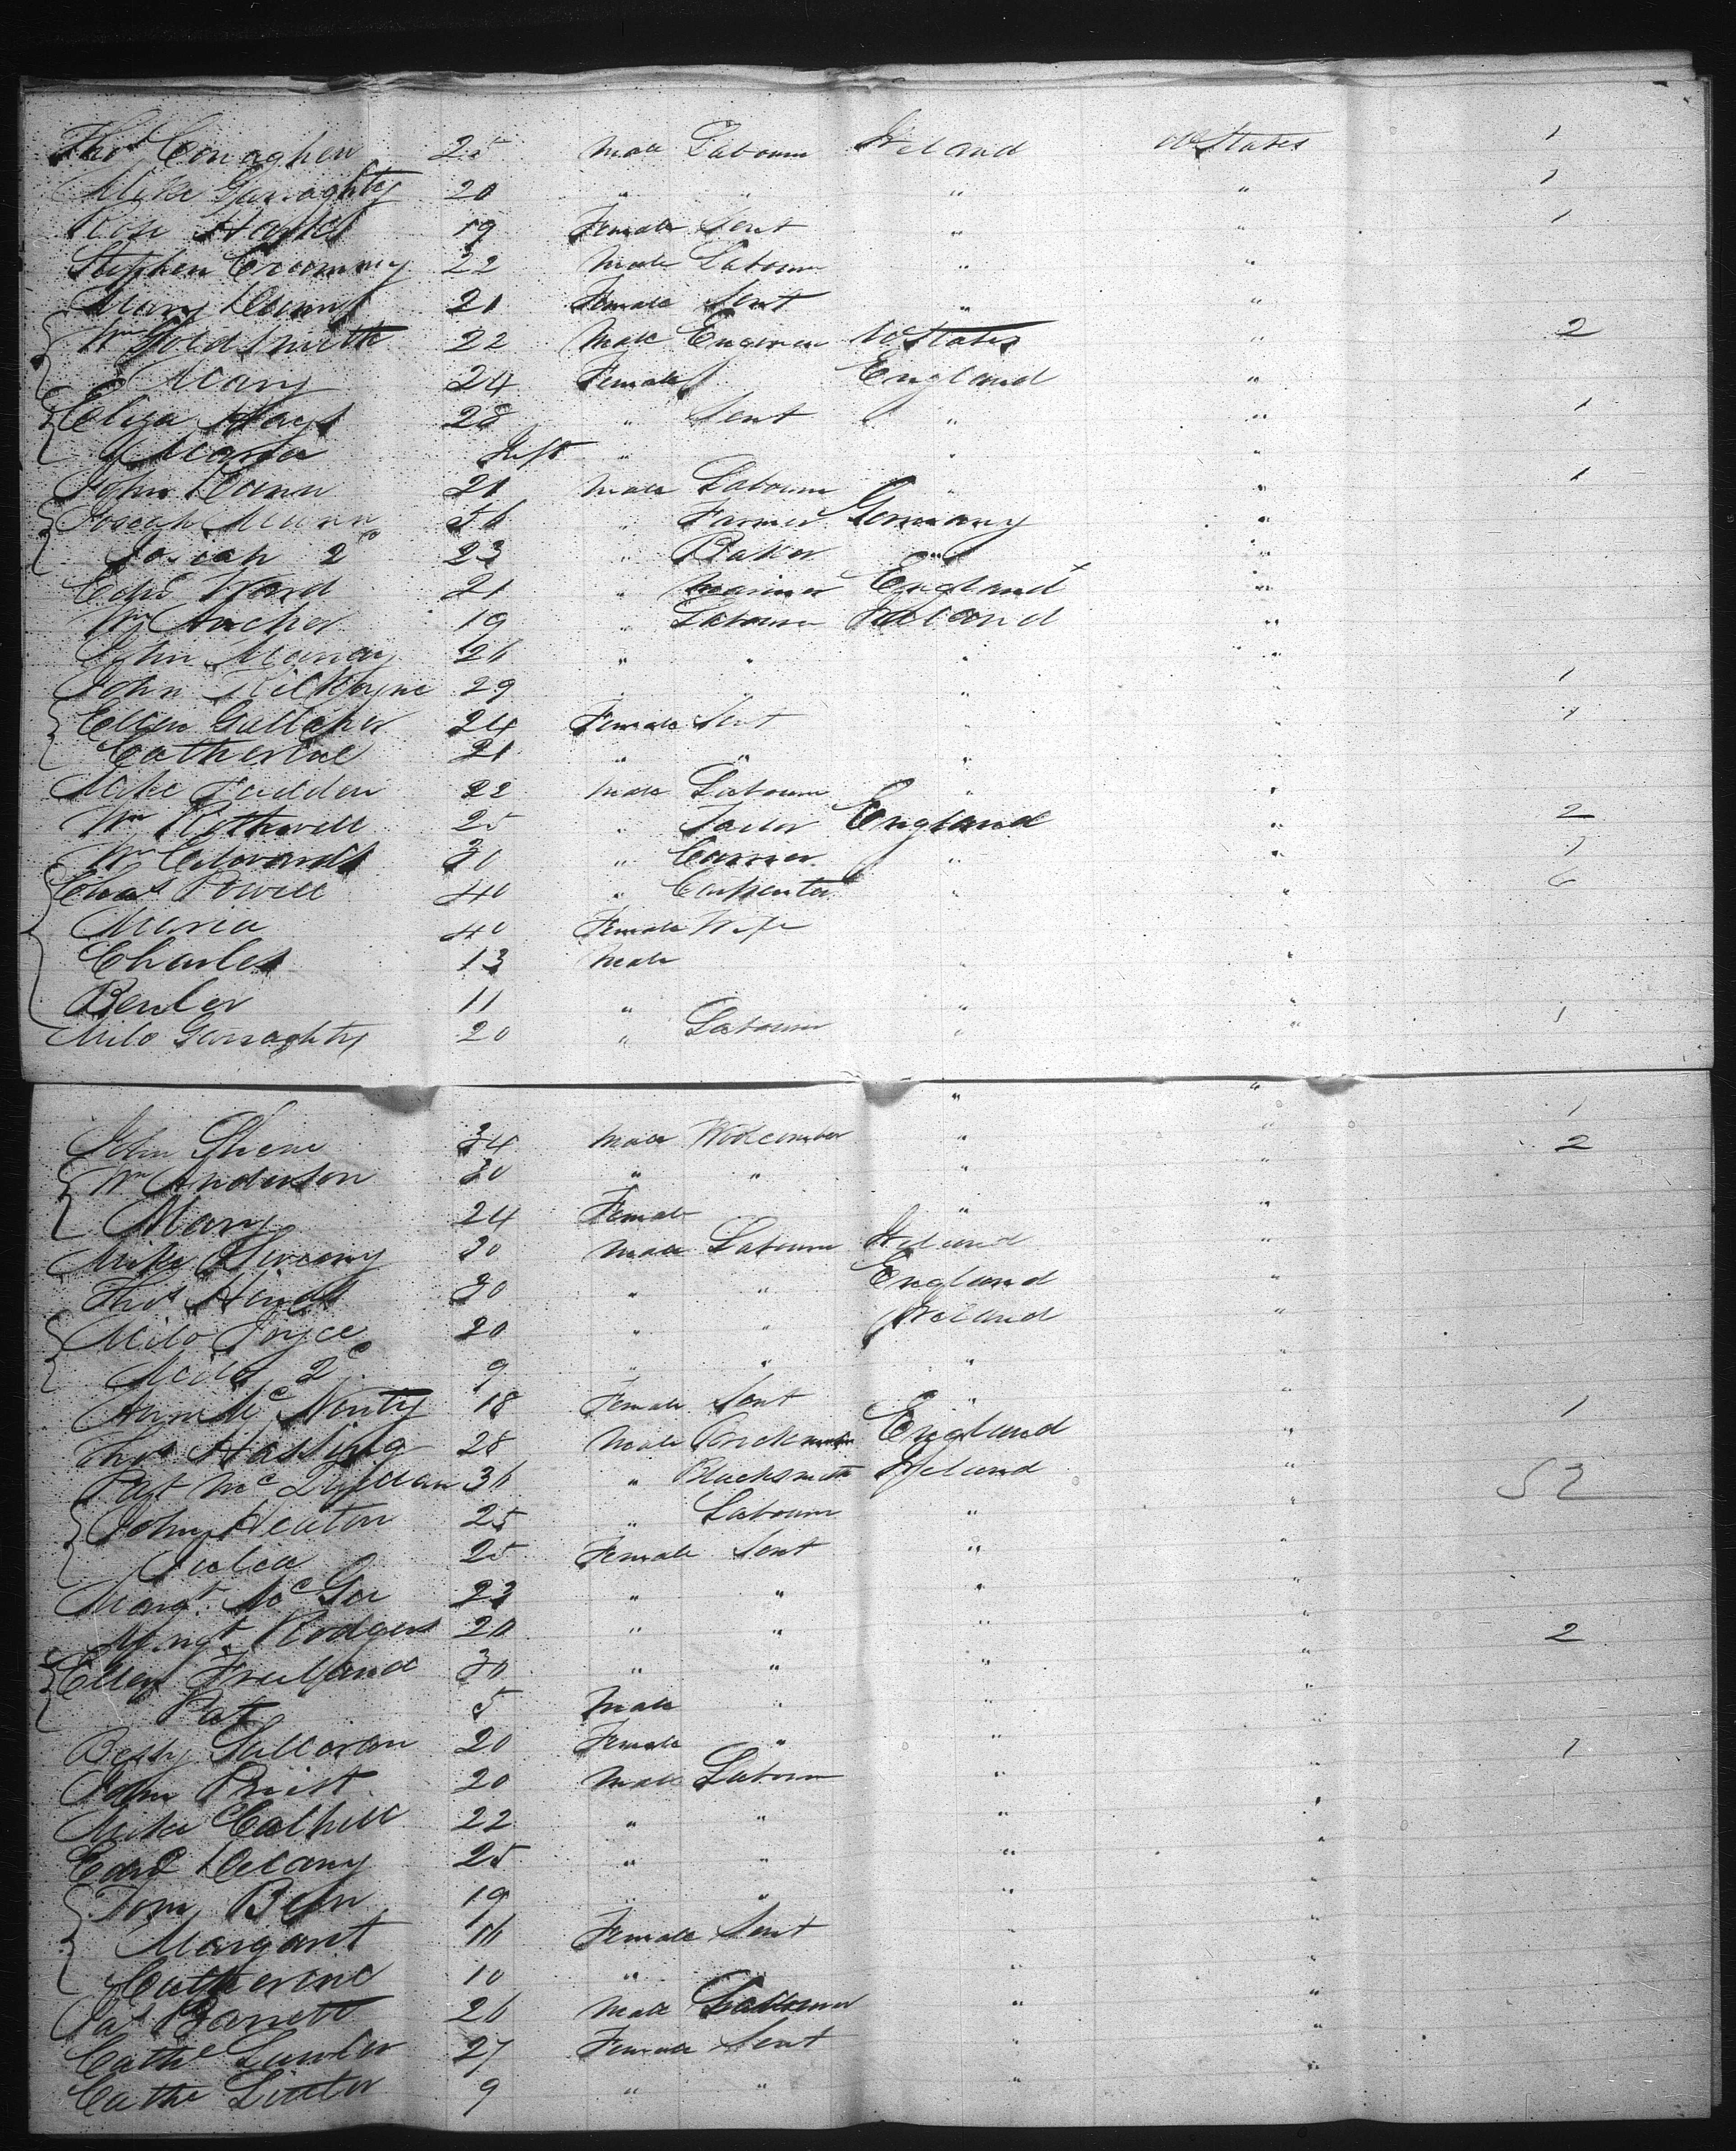 Thos Conaghen 25 Male Labourer Ireland U States 1
Mike Garraghty 20 " " " " 1
Rose 19 Female Servt " " 1
Stephen 22 Male Labourer " "
Mary 20 Female Servt " "
Wm Goldsmith 22 Male Engineer U States " 2
Mary 24 Female England "
Eliza Hays 28 " Servt " " 1
Maria Inft " " "
John 21 Male Labourer " " 1
Joseah Munn 56 " Farmer Germany "
Josiah 2d 23 " Baker " "
Edwd Ward 21 " Mariner England "
Wm Archer 19 " Labourer Ireland "
John 26 " " " "
John Kilkoyne 29 " " " " 1
Ellen Gallaher 24 Female Servt " " 1
Catherine 21 " " " "
Mike Fadden 22 Male Labourer " "
Wm Rothwell 25 " Tailor England " 2
Wm Edwards 30 " " " 1
Chas Powell 40 " Carpenter " " 6
Maria 40 Female Wife
Charles 13 Male " "
11 " " "
Milo Garraghty 20 " Labourer " " 1
" "
John 34 Male Woolcomber " " 1
Wm Anderson 30 " " " " 2
Mary 24 Female " "
Mike 20 Male Labourer Ireland "
Thos Hinds 30 " " England "
Milo Joyce 20 " " Ireland "
Milo 2d 9 " " " "
Ann Mc Nulty 18 Female Servt " " 1
Thos Hassing 28 Male England "
Pat Mc 36 " Blacksmith Ireland " 52
John Heaton 25 " Labourer " "
Julia 25 Female Servt " "
Margt Mc Gee 23 " " " "
Margt Rodgers 20 " " " " 2
Ellen Freeland 30 " " " "
Pat 5 Male " " "
Bessy Sullavan 20 Female " " " 1
John Priest 20 Male Labourer " "
Mike Cathell 22 " " " "
Edwd Delany 25 " " " "
Tom 19 " " " "
Margaret 16 Female Servt " "
Catherine 10 " " "
Jas Barrett 26 Male Labourer " "
Cathe Lawler 27 Female Servt " "
Cathe 9 " " " "